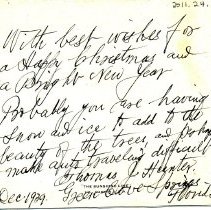 2011.29.
With best wishes for
a Happy Christmas and
a Bright New Year
Probably you are having
snow and ice to add to the
beauty of the trees, and perhaps
make auto traveling difficult
Thomas J. Hunter.
Green Cove Springs
Dec 1929. THE SUNSHINE LAND Florida